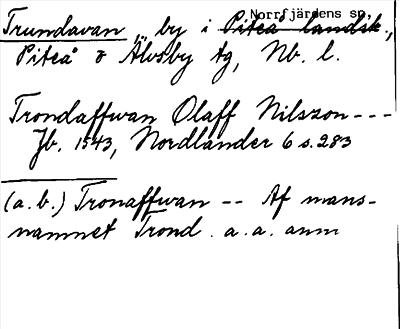 Norrfjärdens sn,
Trundavan, by i Piteå landsk.,
Piteå & Älvsby tg, Nb. l.
Trondaffwan Olaff Nilszon ---
Jb. 1543, Nordlander 6 s. 283
(a.b.) Tronaffwan -- Af mans-
namnet Trond. a.a. anm